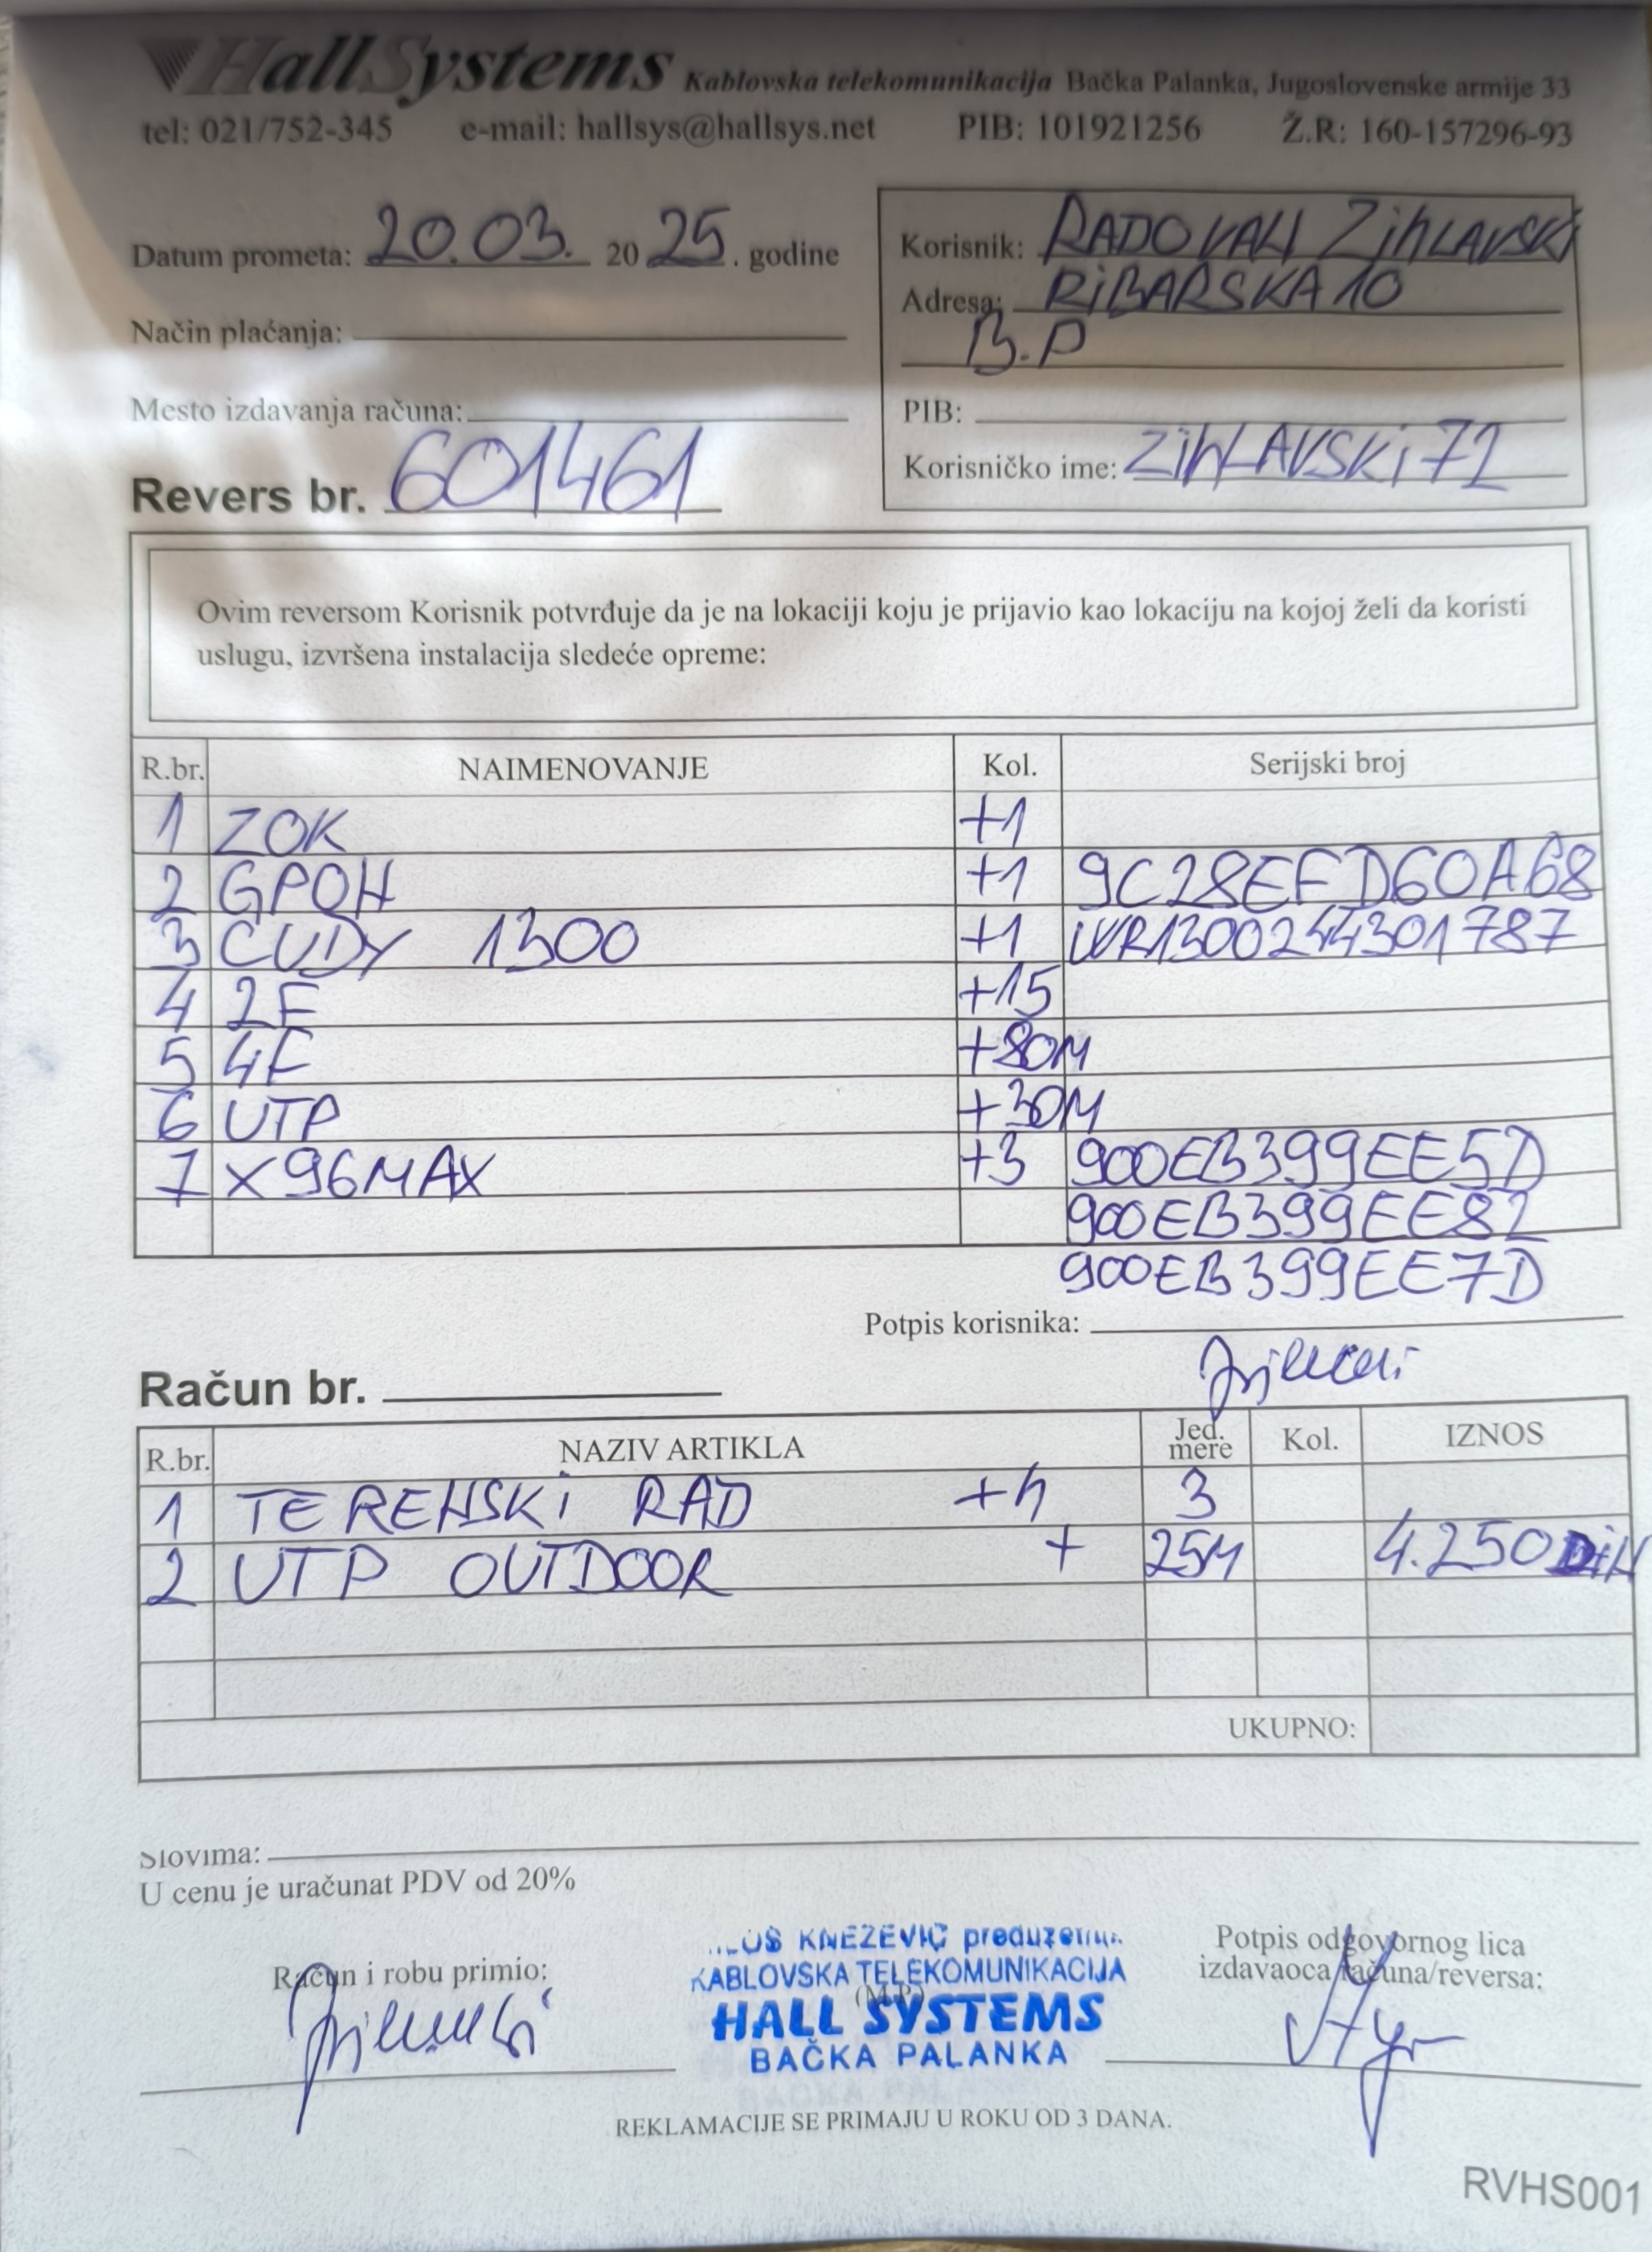 HallSystems Kablovska telekomunikacija Bačka Palanka, Jugoslovenske armije 33
tel: 021/752-345 e-mail: hallsys@hallsys.net PIB: 101921256 Ž.R: 160-157296-93
Datum prometa: 20.03. 20 25. godine
Način plaćanja:
Mesto izdavanja računa:
Revers br. 601461
Korisnik: RADOVAN ZIHLAVSKI
Adresa: RIBARSKA 10
B.P
PIB:
Korisničko ime: ZIHLAVSKI72
Ovim reversom Korisnik potvrđuje da je na lokaciji koju je prijavio kao lokaciju na kojoj želi da koristi
uslugu, izvršena instalacija sledeće opreme:
R.br. NAIMENOVANJE Kol. Serijski broj
1 ZOK +1
2 GPON +1 9C28EFD60A68
3 CUDY 1300 +1 WR1300244301787
4 2F +15
5 4F +80M
6 UTP +30M
7 X96MAX +3 900EB399EE5D
900EB399EE82
900EB399EE7D
Potpis korisnika:
Račun br.
R.br. NAZIV ARTIKLA Jed. mere Kol. IZNOS
1 TERENSKI RAD +h 3
2 UTP OUTDOOR + 25M 4.250DIN
UKUPNO:
Slovima:
U cenu je uračunat PDV od 20%
Račun i robu primio:
KNEŽEVIĆ
KABLOVSKA TELEKOMUNIKACIJA
(M.P.)
HALL SYSTEMS
BAČKA PALANKA
Potpis odgovornog lica
izdavaoca računa/reversa:
REKLAMACIJE SE PRIMAJU U ROKU OD 3 DANA.
RVHS001